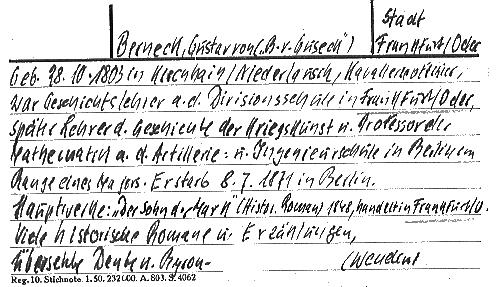 Stadt
Berneck, Gustav von („B. v. Guseck") Frankfurt/Oder
Geb. 28.10.1803 in Kirchhain/Niederlausch, Kavallerieoffizier,
war Geschichtslehrer a. d. Divisionsschule in Frankfurt/Oder,
später Lehrer d. Geschichte der Kriegskunst u. Professor der
Mathematik a. d. Artillerie- u. Ingenieurschule in Berlin im
Range eines Majors. Er starb 8.7.1871 in Berlin.
Hauptwerke: „Der Sohn der Mark" (Histor. Roman) 1848, handelt in Frankfurt/O.
Viele historische Romane u. Erzählungen,
übersetzte Dante u. Byron.
Reg. 10. Stichnote. 1. 50. 232000. A. 803. S. 4062